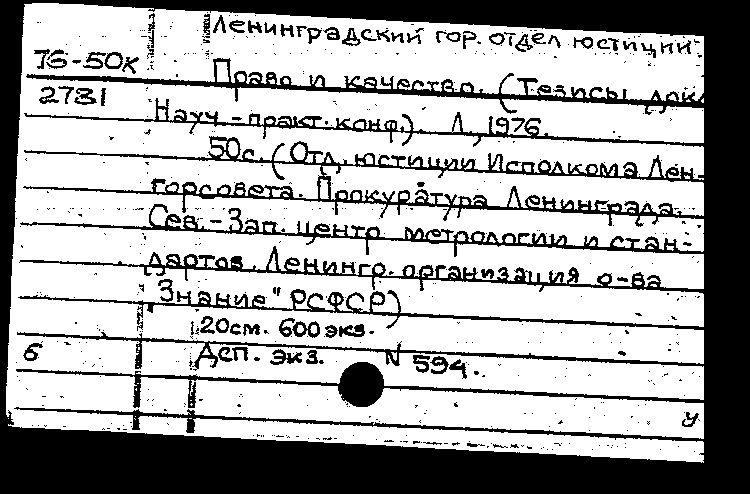 Ленинградский гор. отдел юстиции
76-50к
Право и качество. (Тезисы докл
2781
Науч.-практ. конф.). Л., 1976.
50с. (Отд. юстиции Исполкома Лен-
горсовета. Прокуратура Ленинграда.
Сев.-Зап. центр метрологии и стан-
дартов. Ленингр. организация о-ва
"Знание" РСФСР)
20см. 600 экз.
б
Дсп. экз. N 594.
У